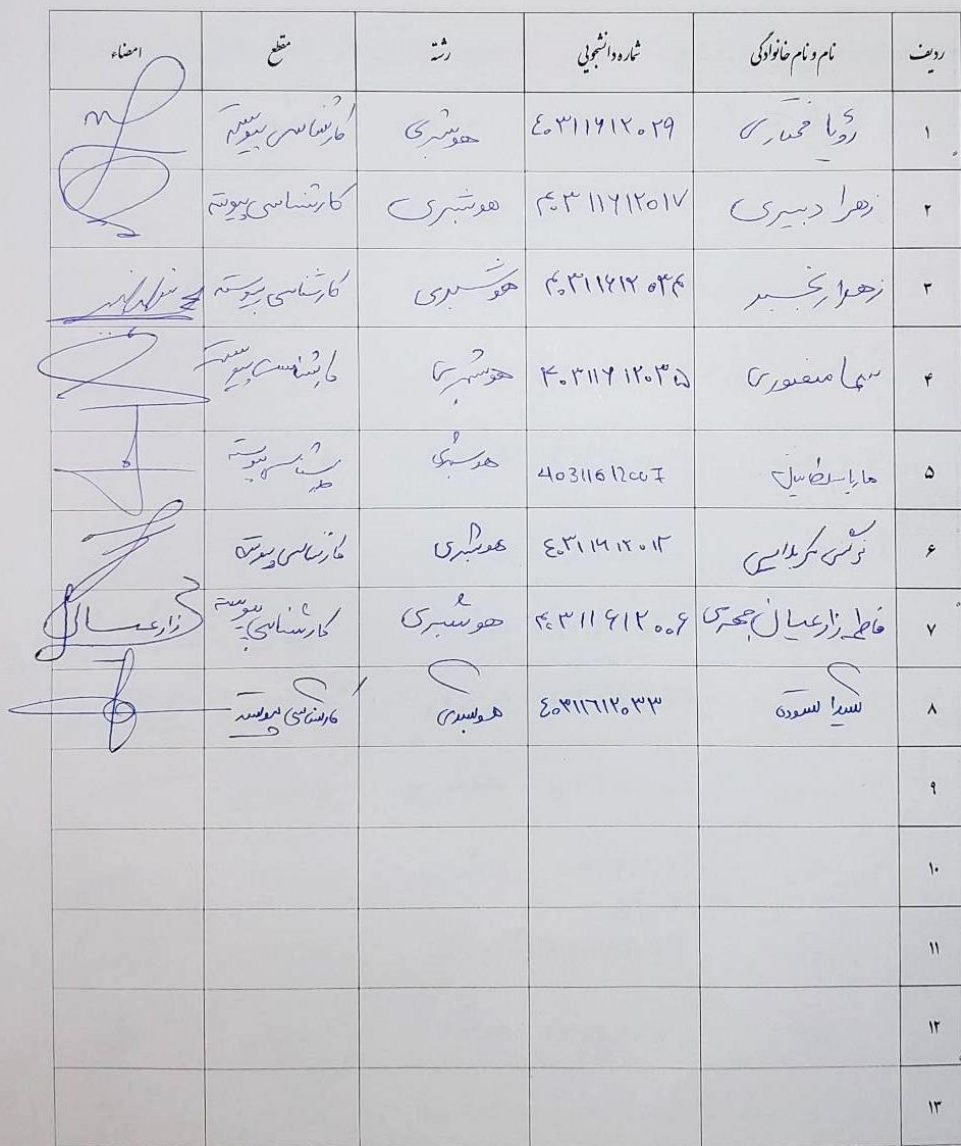 ردیف نام و نام خانوادگی شماره دانشجویی رشته مقطع امضاء
۱ رؤیا مختاری ۴۰۳۱۱۶۱۲۰۲۹ هوشبری کارشناسی پیوسته
۲ زهرا دبیری ۴۰۳۱۱۶۱۲۰۱۷ هوشبری کارشناسی پیوسته
۳ زهرا ۴۰۳۱۱۶۱۲۰۳۴ هوشبری کارشناسی پیوسته
۴ سما منصوری ۴۰۳۱۱۶۱۲۰۳۵ هوشبری کارشناسی پیوسته
۵ 40311612007 هوشبری کارشناسی پیوسته
۶ نرگس کربلایی ۴۰۳۱۱۶۱۲۰۱۲ هوشبری کارشناسی پیوسته
۷ فاطمه زارعیان جهرمی ۴۰۳۱۱۶۱۲۰۰۶ هوشبری کارشناسی پیوسته
۸ ستوده ۴۰۳۱۱۶۱۲۰۳۳ هوشبری کارشناسی پیوسته
۹
۱۰
۱۱
۱۲
۱۳